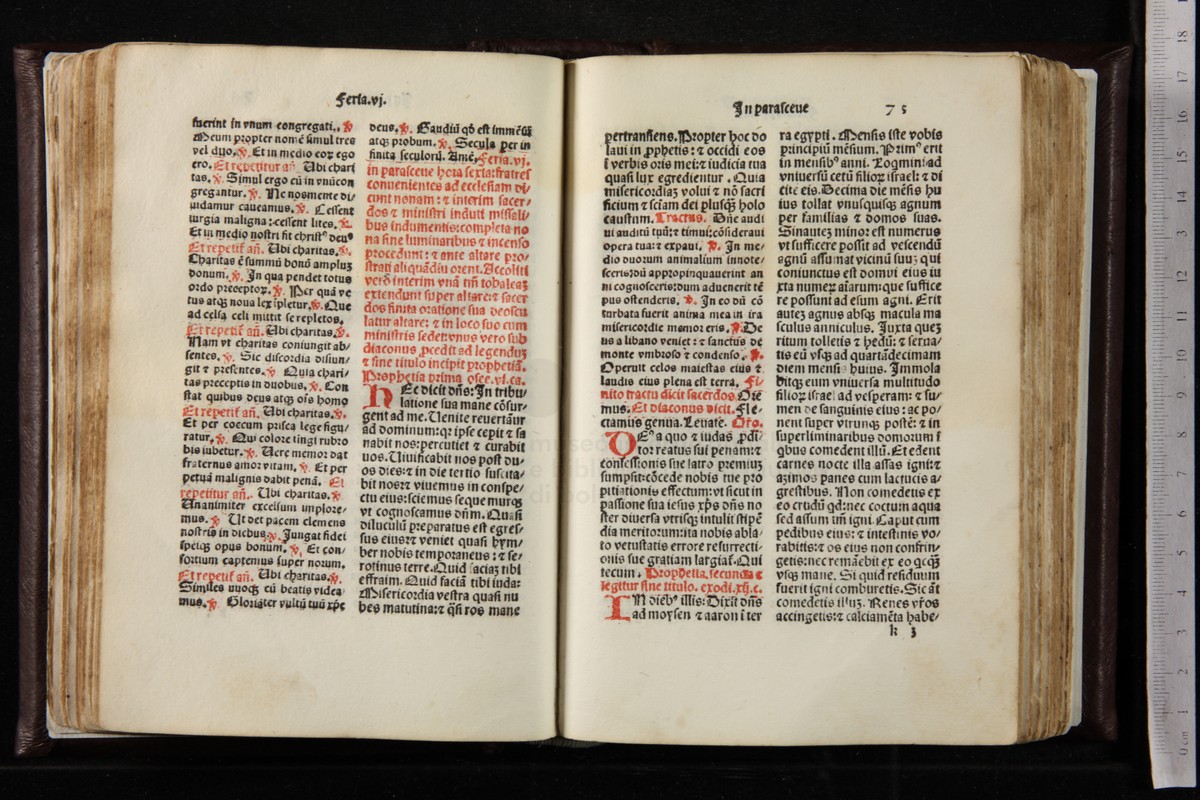 Feria.vj.
fuerint in vnum congregati. ℣
Meum propter nomē simul tres
vel duo. ℣. Et in medio eoꝝ ego
ero. Et repetitur añ. Ubi chari
tas. ℣. Simul ergo cū in vnū con
gregantur. ℣. Ne nos mente di/
uidamur caueamus. ℣. Cessent
iurgia maligna: cessent lites. ℣.
Et in medio nostri sit christꝰ deus
Et repetit̄ añ. Ubi charitas. ℣.
Charitas ē summū bonū ampluꝫ
donum. ℣. In qua pendet totus
ordo preceptoꝝ. ℣. Per quā ve
tus atqꝫ noua lex īpletur. ℣. Que
ad celsa celi mittit se repletos.
Et repetit̄ añ. Ubi charitas. ℣.
Nam vt charitas coniungit ab/
sentes. ℣. Sic discordia disiun/
git ⁊ presentes. ℣. Quia chari/
tas preceptis in duobus. ℣. Con
stat quibus deus atqꝫ oīs homo
Et repetit̄ añ. Ubi charitas. ℣.
Et per coccum prisca lege figu/
ratur. ℣. Qui colore tingi rubro
bis iubetur. ℣. Uere memor dat
fraternus amor vitam. ℣. Et per
petuā malignis dabit penā. Et
repetitur añ. Ubi charitas. ℣.
Unanimiter excelsum implore/
mus. ℣. Ut det pacem clemens
nostris in diebus. ℣. Jungat fidei
speiqꝫ opus bonum. ℣. Et con/
sortium captemus super norum.
Et repetit̄ añ. Ubi charitas. ℣.
Similes uoqꝫ cū beatis videa/
mus. ℣. Glorianter vultū tuū xp̄e
deus. ℣. Gaudiū qd̄ est immēsū
atqꝫ probum. ℣. Secula per in
finita seculorū. Amē. Feria.vj.
in parasceue hora sexta: fratres
conuenientes ad ecclesiam di/
cunt nonam: ⁊ interim sacer/
dos ⁊ ministri induti missali/
bus indumentis: completa no
na sine luminaribus ⁊ incenso
procedunt: ⁊ ante altare pro/
strati aliquādiu orent. Accoliti
vero interim vnā tm̄ tobaleaꝫ
extendunt super altare: ⁊ sacer
dos finita oratione sua deoscu
latur altare: ⁊ in loco suo cum
ministris sedet: vnus vero sub
diaconus ꝓcedit ad legenduꝫ
⁊ sine titulo incipit prophetiā.
Prophetia prima osee.vi.ca.
HEc dicit dn̄s: In tribu/
latione sua mane cōsur/
gent ad me. Uenite reuertāur
ad dominum: qꝛ ipse cepit ⁊ sa
nabit nos: percutiet ⁊ curabit
uos. Uiuificabit nos post du/
os dies: ⁊ in die tertio suscita/
bit nos: ⁊ viuemus in conspe/
ctu eius: sciemus sequemurqꝫ
vt cognoscamus dn̄m. Quasi
diluculū preparatus est egres/
sus eius: ⁊ veniet quasi hym/
ber nobis temporaneus: ⁊ se/
rotinus terre. Quid faciaꝫ tibi
effraim. Quid faciā tibi iuda:
Misericordia vestra quasi nu
bes matutina: ⁊ q̄si ros mane
In parasceue 75
pertransiens. Propter hoc do
laui in ꝓphetis: ⁊ occidi eos
ī verbis oris mei: ⁊ iudicia tua
quasi lux egredientur. Quia
misericordiaꝫ volui ⁊ nō sacri
ficium ⁊ sciam dei plusqꝫ holo
caustum. Tractus. Dñe audi
ui auditū tuū: ⁊ timui: cōsideraui
opera tua: ⁊ expaui. ℣. In me/
dio duorum animalium innote/
sceris: dū appropinquauerint an
ni cognosceris: dum aduenerit tē
pus ostenderis. ℣. In eo dū cō
turbata fuerit anima mea in ira
misericordie memor eris. ℣. De
us a libano veniet: ⁊ sanctus de
monte vmbroso ⁊ condenso. ℣.
Operuit celos maiestas eius ⁊
laudis eius plena est terra. Fi/
nito tractu dicit sacerdos. Ore
mus. Et diaconus dicit. Fle/
ctamus genua. Leuate. Oro.
DEꝰ a quo ⁊ iudas ꝓdi/
tor reatus sui penam: ⁊
confessionis sue latro premiuꝫ
sumpsit: cōcede nobis tue pro
pitiationis effectum: vt sicut in
passione sua iesus xp̄s dn̄s no
ster diuersa vtrisqꝫ intulit stipē
dia meritorum: ita nobis abla/
to vetustatis errore resurrecti/
onis sue gratiam largiat̄. Qui
tecum. Prophetia. secunda ⁊
legitur sine titulo. exodi.xij.c.
IN diebꝰ illis: Dixit dn̄s
ad moysen ⁊ aaron ī ter
ra egypti. Mensis iste vobis
principiū mēsium. Primꝰ erit
in mensibꝰ anni. Loqmini ad
vniuersū cetū filioꝝ israel: ⁊ di
cite eis. Decima die mēsis hu
ius tollat vnusquisqꝫ agnum
per familias ⁊ domos suas.
Sin autez minor est numerus
vt sufficere possit ad vescendū
agnū assumat vicinū suuꝫ qui
coniunctus est domui eius iu
xta numerꝫ aīarum: que suffice
re possunt ad esum agni. Erit
auteꝫ agnus absqꝫ macula ma
sculus anniculus. Juxta queꝫ
ritum tolletis ⁊ hedū: ⁊ serua/
tis eū vsqꝫ ad quartādecimam
diem mensis huius. Immola
bitqꝫ eum vniuersa multitudo
filioꝝ israel ad vesperam: ⁊ su/
men de sanguinis eius: ac po/
nent super vtrunqꝫ postē: ⁊ in
superliminaribus domorum ī
qbus comedent illū. Et edent
carnes nocte illa assas igni: ⁊
azimos panes cum lactucis a/
grestibus. Non comedetis ex
eo crudū qd: nec coctum aqua
sed assum tm̄ igni. Caput cum
pedibus eius: ⁊ intestinis vo/
rabitis: ⁊ os eius non confrin/
getis: nec remāebit ex eo qcqꝫ
vsqꝫ mane. Si quid residuum
fuerit igni comburetis. Sic āt
comedetis illuꝫ. Renes vr̄os
accingetis: ⁊ calciamēta habe/
k 3